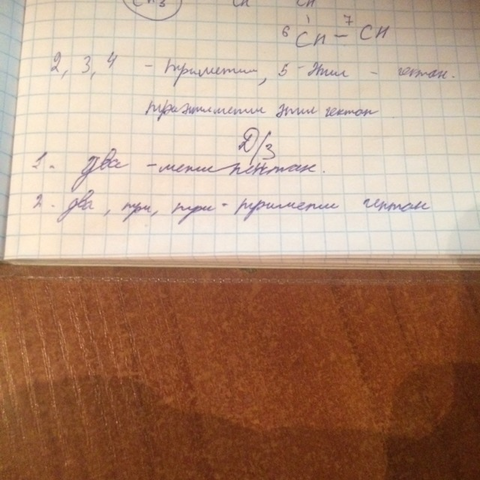 CH3 CH CH
6 CH – 7 CH
2, 3, 4 - триметил, 5 - этил - гептан.
этил гептан
Д/з
1. два - метил пентан.
2. два, три, три - триметил гептан